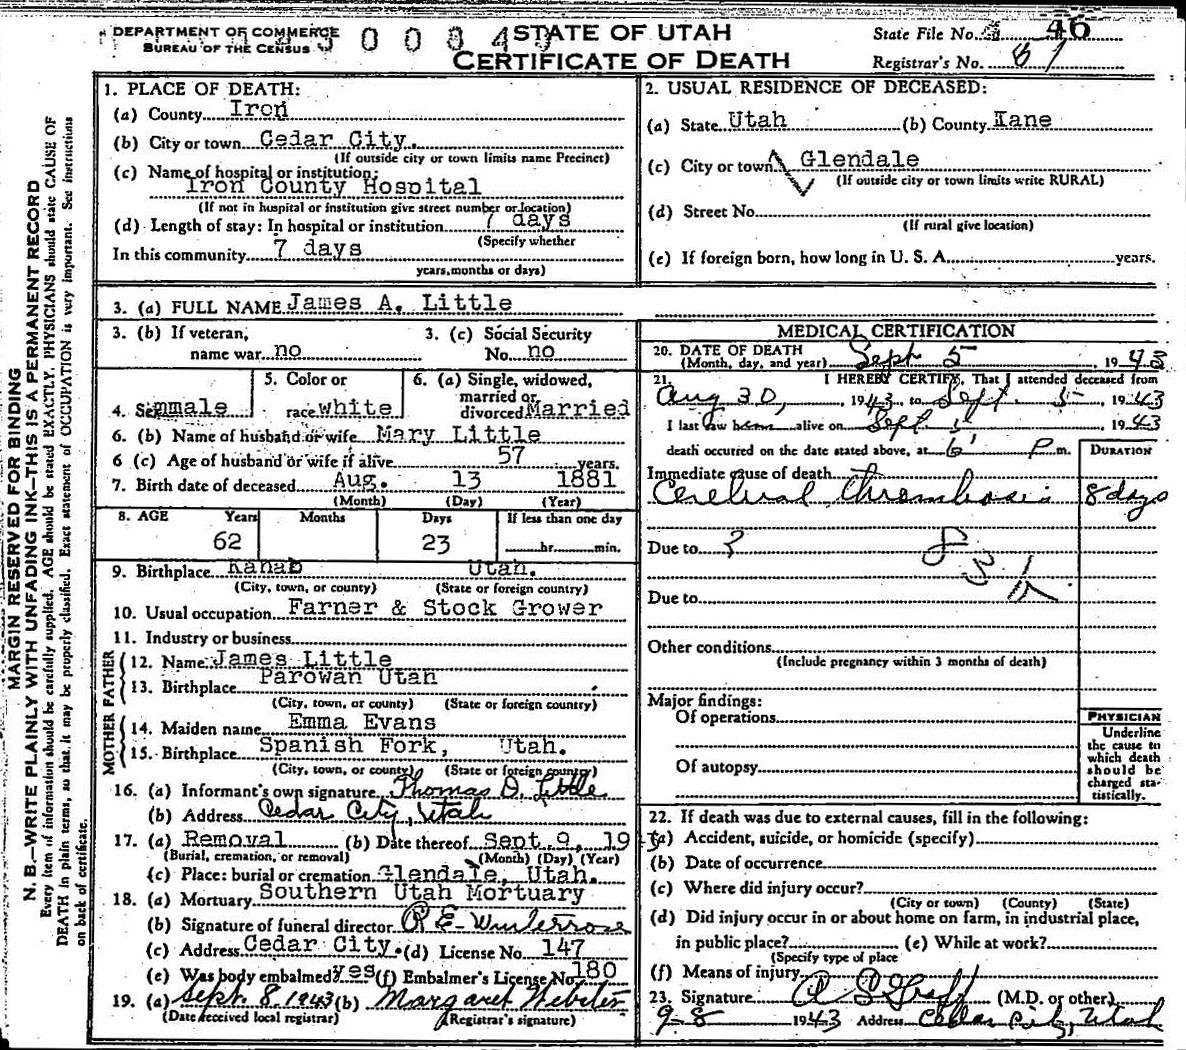 DEPARTMENT OF COMMERCE
BUREAU OF THE CENSUS
STATE OF UTAH
CERTIFICATE OF DEATH
State File No. 46
Registrar's No. 87
MARGIN RESERVED FOR BINDING
N. B.—WRITE PLAINLY WITH UNFADING INK—THIS IS A PERMANENT RECORD
Every item of information should be carefully supplied. AGE should be stated EXACTLY. PHYSICIANS should state CAUSE OF
DEATH in plain terms, so that it may be properly classified. Exact statement of OCCUPATION is very important. See instructions
on back of certificate.
1. PLACE OF DEATH:
(a) County Iron
(b) City or town Cedar City.
(If outside city or town limits name Precinct)
(c) Name of hospital or institution:
Iron County Hospital
(If not in hospital or institution give street number or location)
(d) Length of stay: In hospital or institution 7 days
(Specify whether
In this community 7 days
years, months or days)
2. USUAL RESIDENCE OF DECEASED:
(a) State Utah (b) County Kane
(c) City or town Glendale
(If outside city or town limits write RURAL)
(d) Street No.
(If rural give location)
(e) If foreign born, how long in U. S. A. years.
3. (a) FULL NAME James A. Little
3. (b) If veteran,
name war no
3. (c) Social Security
No. no
4. Sex male
5. Color or
race white
6. (a) Single, widowed,
married or
divorced Married
6. (b) Name of husband or wife Mary Little
6 (c) Age of husband or wife if alive 57 years.
7. Birth date of deceased Aug. 13 1881
(Month) (Day) (Year)
8. AGE Years Months Days If less than one day
62 23 hr. min.
9. Birthplace Kanab Utah.
(City, town, or county) (State or foreign country)
10. Usual occupation Farner & Stock Grower
11. Industry or business
FATHER
12. Name James Little
13. Birthplace Parowan Utah
(City, town, or county) (State or foreign country)
MOTHER
14. Maiden name Emma Evans
15. Birthplace Spanish Fork, Utah.
(City, town, or county) (State or foreign country)
16. (a) Informant's own signature Thomas D. Little
(b) Address Cedar City, Utah
17. (a) Removal (b) Date thereof Sept 9, 19
(Burial, cremation, or removal) (Month) (Day) (Year)
(c) Place: burial or cremation Glendale, Utah.
18. (a) Mortuary Southern Utah Mortuary
(b) Signature of funeral director R E Winterrose
(c) Address Cedar City. (d) License No. 147
(e) Was body embalmed? yes (f) Embalmer's License No. 180
19. (a) Sept. 8, 1943 (b) Margaret Webster
(Date received local registrar) (Registrar's signature)
MEDICAL CERTIFICATION
20. DATE OF DEATH
(Month, day, and year) Sept 5 1943
21. I HEREBY CERTIFY, That I attended deceased from
Aug 30, 1943, to Sept. 5 1943
I last saw him alive on Sept. 5 1943
death occurred on the date stated above, at 6 P m.
DURATION
Immediate cause of death
Cerebral thrombosis 8 days
Due to ?
83
Due to
Other conditions
(Include pregnancy within 3 months of death)
Major findings:
Of operations
Of autopsy
PHYSICIAN
Underline
the cause to
which death
should be
charged sta-
tistically.
22. If death was due to external causes, fill in the following:
(a) Accident, suicide, or homicide (specify)
(b) Date of occurrence
(c) Where did injury occur?
(City or town) (County) (State)
(d) Did injury occur in or about home on farm, in industrial place,
in public place? (e) While at work?
(Specify type of place
(f) Means of injury
23. Signature (M.D. or other)
9-8 1943 Address Cedar City, Utah